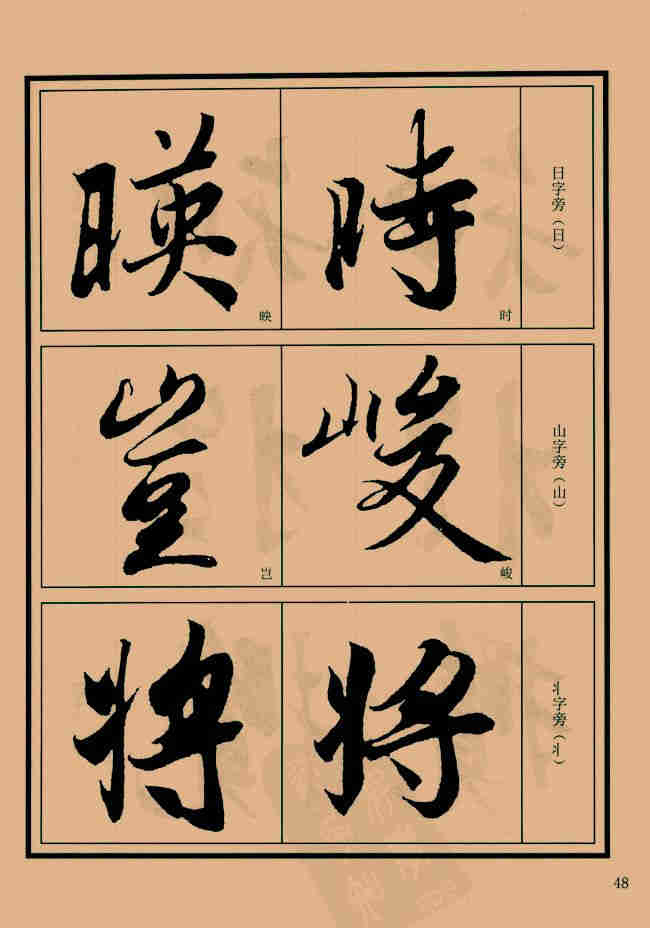 日字旁（日）
時
时
暎
映
山字旁（山）
峻
峻
豈
岂
丬字旁（丬）
将
将
48